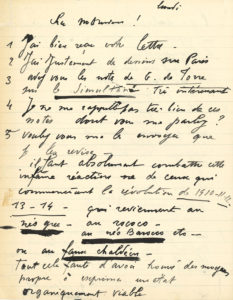 Lundi
Cher Monsieur!
1 J'ai bien reçu votre lettre.
2 J'ai justement de dessins sur Paris
3 avez vous les note de G. de Torre
sur le Simultané très intéressant
4 Je ne me rappelle pas très bien de ces
notes dont vous me parlez?
5 voulez vous me le envoyer que
je les revise
il faut absolument combattre cette
infame réaction de ceux qui
commencèrent la révolution de 1910-11-12
13-14 - qui reviennent au
néo grec - au rococo -
au néo Barocco etc -
ou au faux chaldéen -
Tout cela faute d'avoir trouvé des moyens
propre à exprimer un état
organiquement viable